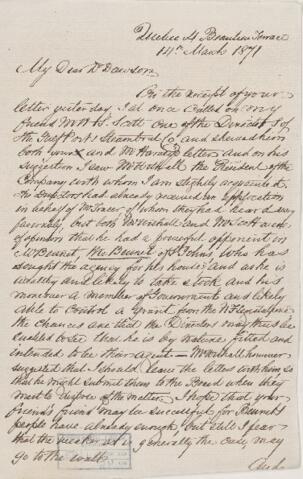 Quebec 4 Brandon Terrace
14th March 1871
My Dear Dr Dawson
On the receipt of your
letter yesterday I at once called on my
friend Mr H. S. Scott one of the Directors of
the Gulf Port Steamboat Co and shewed him
both yours and Mr Harvey's letters and on his
suggestion I saw Mr Wirthall the President of the
Company with whom I am slightly acquainted
The Directors had already received an application
in behalf of Mr Grace, of whom they heard very
favorably, but both Mr Wirthall and Mr Scott were
of opinion that he had a powerful opponent in
Mr Bennet, Mr Bennet of St Johns who has
sought the agency for his house, and as he is
wealthy and likely to take stock and his
moreover a member of Government and likely
able to control a grant from the Nfld Legislature
the chances are that the Directors may thus be
enabled to see that he is by nature fitted and
intended to be their agent — Mr Wirthall however
suggested that I should leave the letters with him so
that he might submit them to the Board when they
meet to dispose of the matter. I hope that your
friend's friend may be successful for Bennet's
people have already enough, but still I fear
that the weaker as is generally the case, may
go to the wall.
And